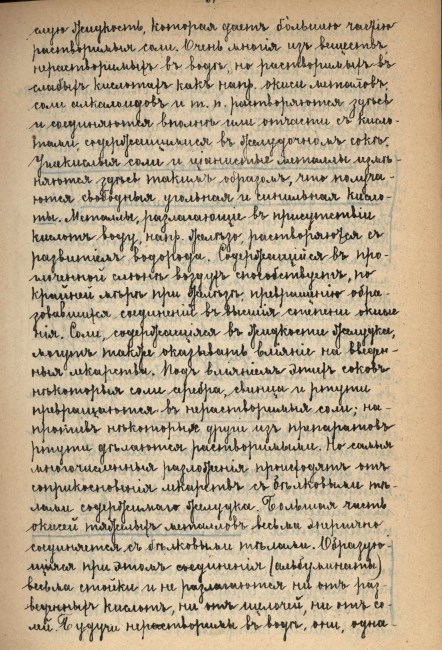 слую жидкость, которая даетъ большею частію
растворимыя соли. Очень многія изъ веществъ
нерастворимыхъ въ водѣ, но растворимыхъ въ
слабыхъ кислотахъ какъ напр. окиси металловъ,
соли алкалоидовъ и т. п. растворяются здѣсь
и соединяются вполнѣ или отчасти съ кисло-
тами, содержащимися въ желудочномъ сокѣ.
Углекислыя соли и ціанистые металлы измѣ-
няются здѣсь такимъ образомъ, что получа-
ются свободныя угольная и синильная кисло-
ты. Металлы, разлагающіе въ присутствіи
кислотъ воду, напр. желѣзо, растворяются съ
развитіемъ водорода. Содержащійся въ про-
глоченной слюнѣ воздухъ способствуетъ, по
крайней мѣрѣ при желѣзѣ, превращенію обра-
зовавшихся соединеній въ высшія степени окисле-
нія. Соли, содержащіяся въ жидкости желудка,
могутъ также оказывать вліяніе на введен-
ныя лекарства. Подъ вліяніемъ этихъ соковъ
нѣкоторыя соли серебра, свинца и ртути
превращаются въ нерастворимыя соли; на-
противъ нѣкоторые другіе изъ препаратовъ
ртути дѣлаются растворимыми. Но самыя
многочисленныя разложенія происходятъ отъ
соприкосновенія лекарствъ съ бѣлковыми тѣ-
лами содержимаго желудка. Большая часть
окисей тяжелыхъ металловъ весьма энергично
соединяется съ бѣлковыми тѣлами. Образую-
щіяся при этомъ соединенія (альбуминаты)
весьма стойки и не разлагаются ни отъ раз-
веденныхъ кислотъ, ни отъ щелочей, ни отъ со-
лей. Будучи нерастворимы въ водѣ, они, одна-